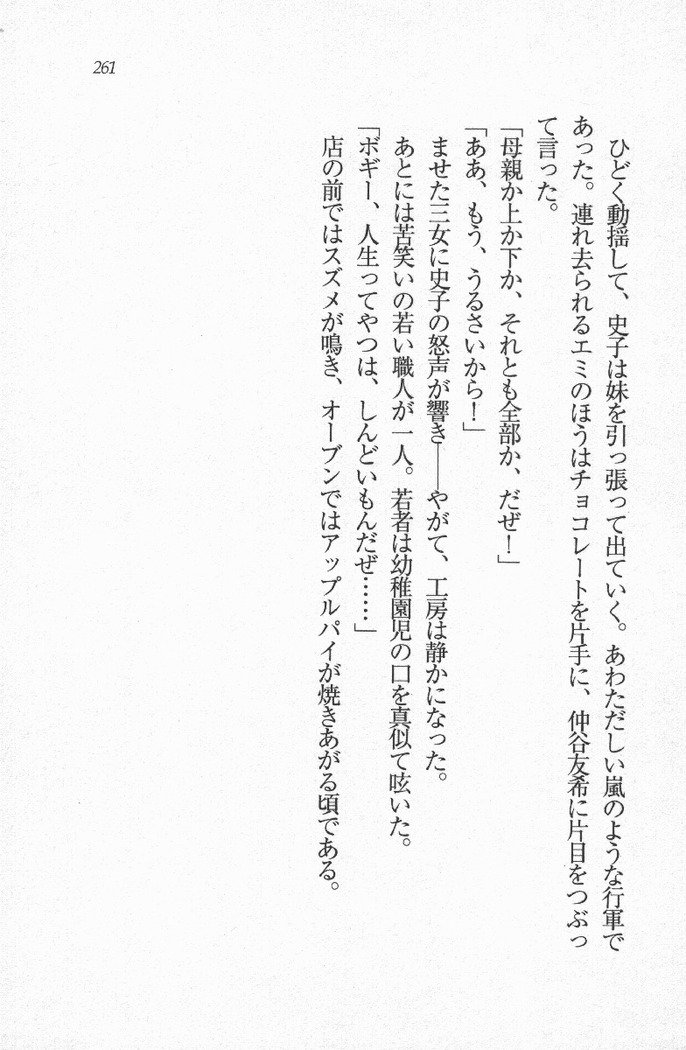 261
ひどく動揺して、史子は妹を引っ張って出ていく。あわただしい嵐のような行軍で
あった。連れ去られるエミのほうはチョコレートを片手に、仲谷友希に片目をつぶっ
て言った。
「母親か上か下か、それとも全部か、だぜ！」
「ああ、もう、うるさいから！」
ませた三女に史子の怒声が響き――やがて、工房は静かになった。
あとには苦笑いの若い職人が一人。若者は幼稚園児の口を真似て呟いた。
「ボギー、人生ってやつは、しんどいもんだぜ……」
店の前ではスズメが鳴き、オーブンではアップルパイが焼きあがる頃である。